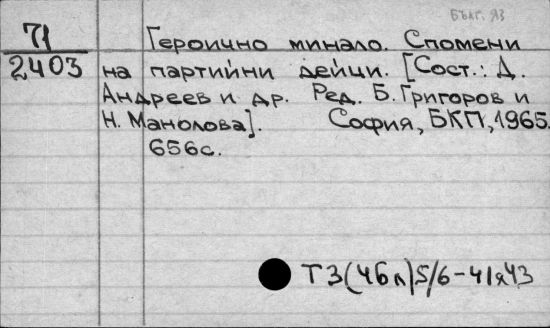 Бълг. яз
71
2403
Героично минало. Спомени
на партийни дейци. [Сост.: Д.
Андреев и др. Ред. Б. Григоров и
Н. Манолова]. София, БКП, 1965.
656с.
Т3(4Бл)5/6-41я43